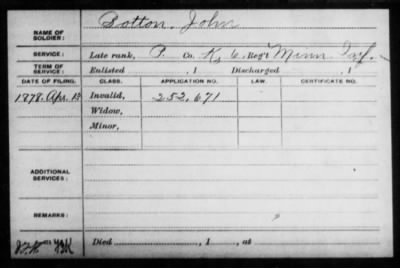 NAME OF SOLDIER: Sotton, John
SERVICE: Late rank, P. Co. K, 6 Reg't Minn Inf.
TERM OF SERVICE: Enlisted , 1 Discharged , 1
DATE OF FILING. CLASS. APPLICATION NO. LAW. CERTIFICATE NO.
1878, Apr. Invalid, 252,671
Widow,
Minor,
ADDITIONAL SERVICES:
REMARKS:
Died , 1 , at